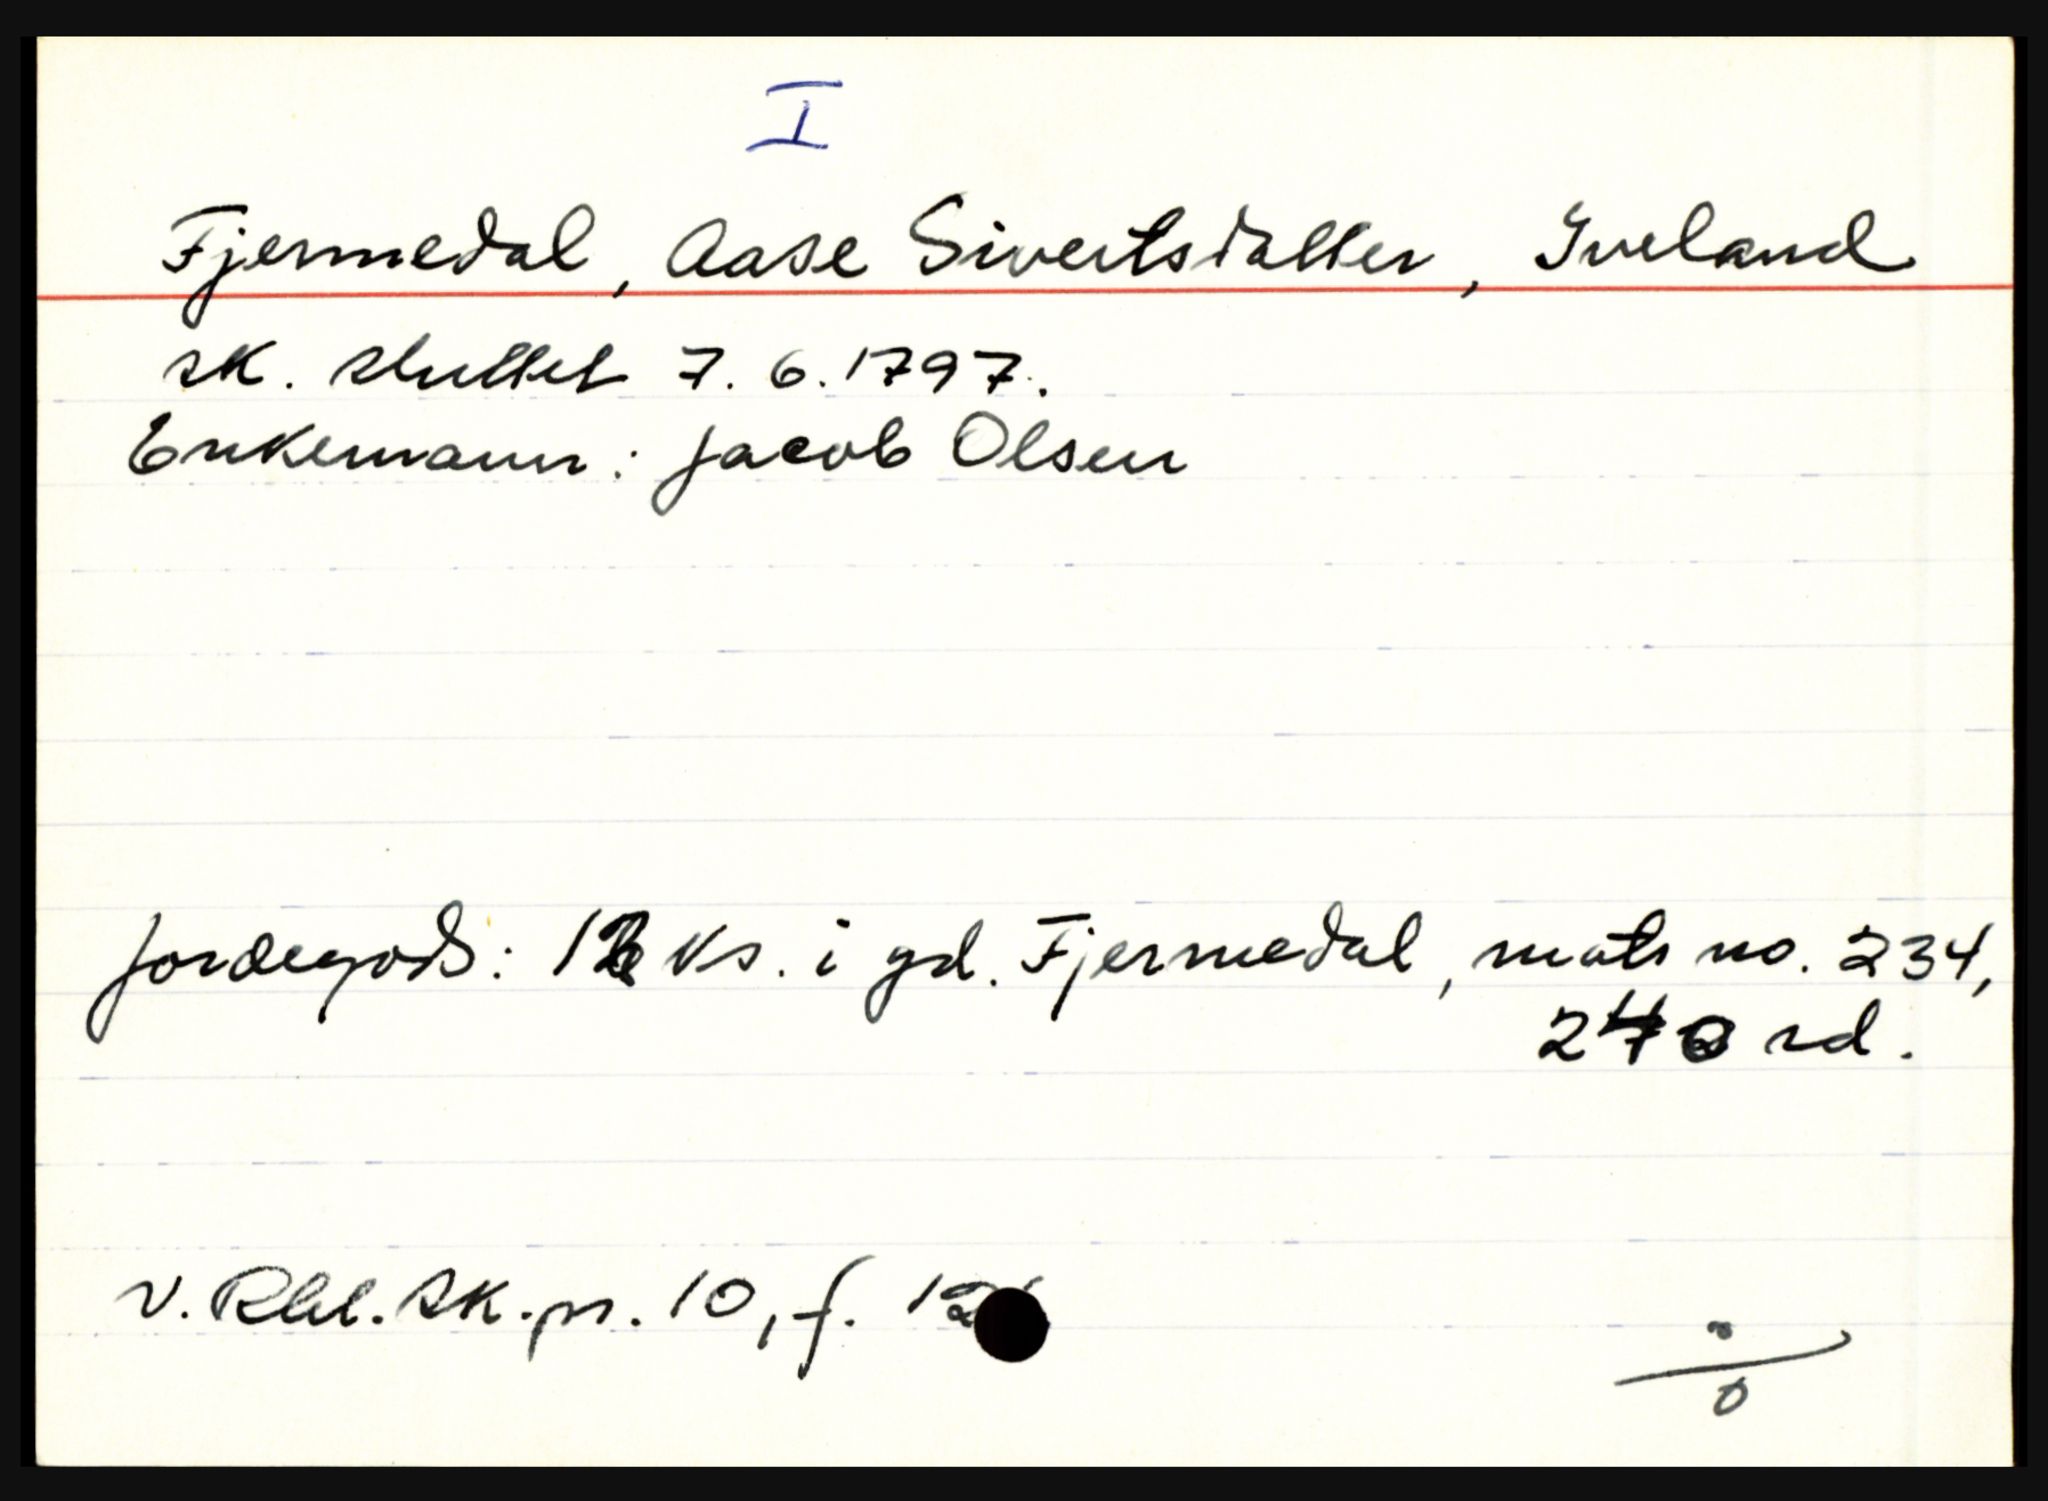 I
Fjermedal, Aase Sivertsdatter, Iveland
sk. sluttet 7. 6. 1797.
Enkemann: Jacob Olsen
Jordegods: ks. i gd. Fjermedal, matr no. 234,
rd.
v. Rbl. sk. pr. 10, f.